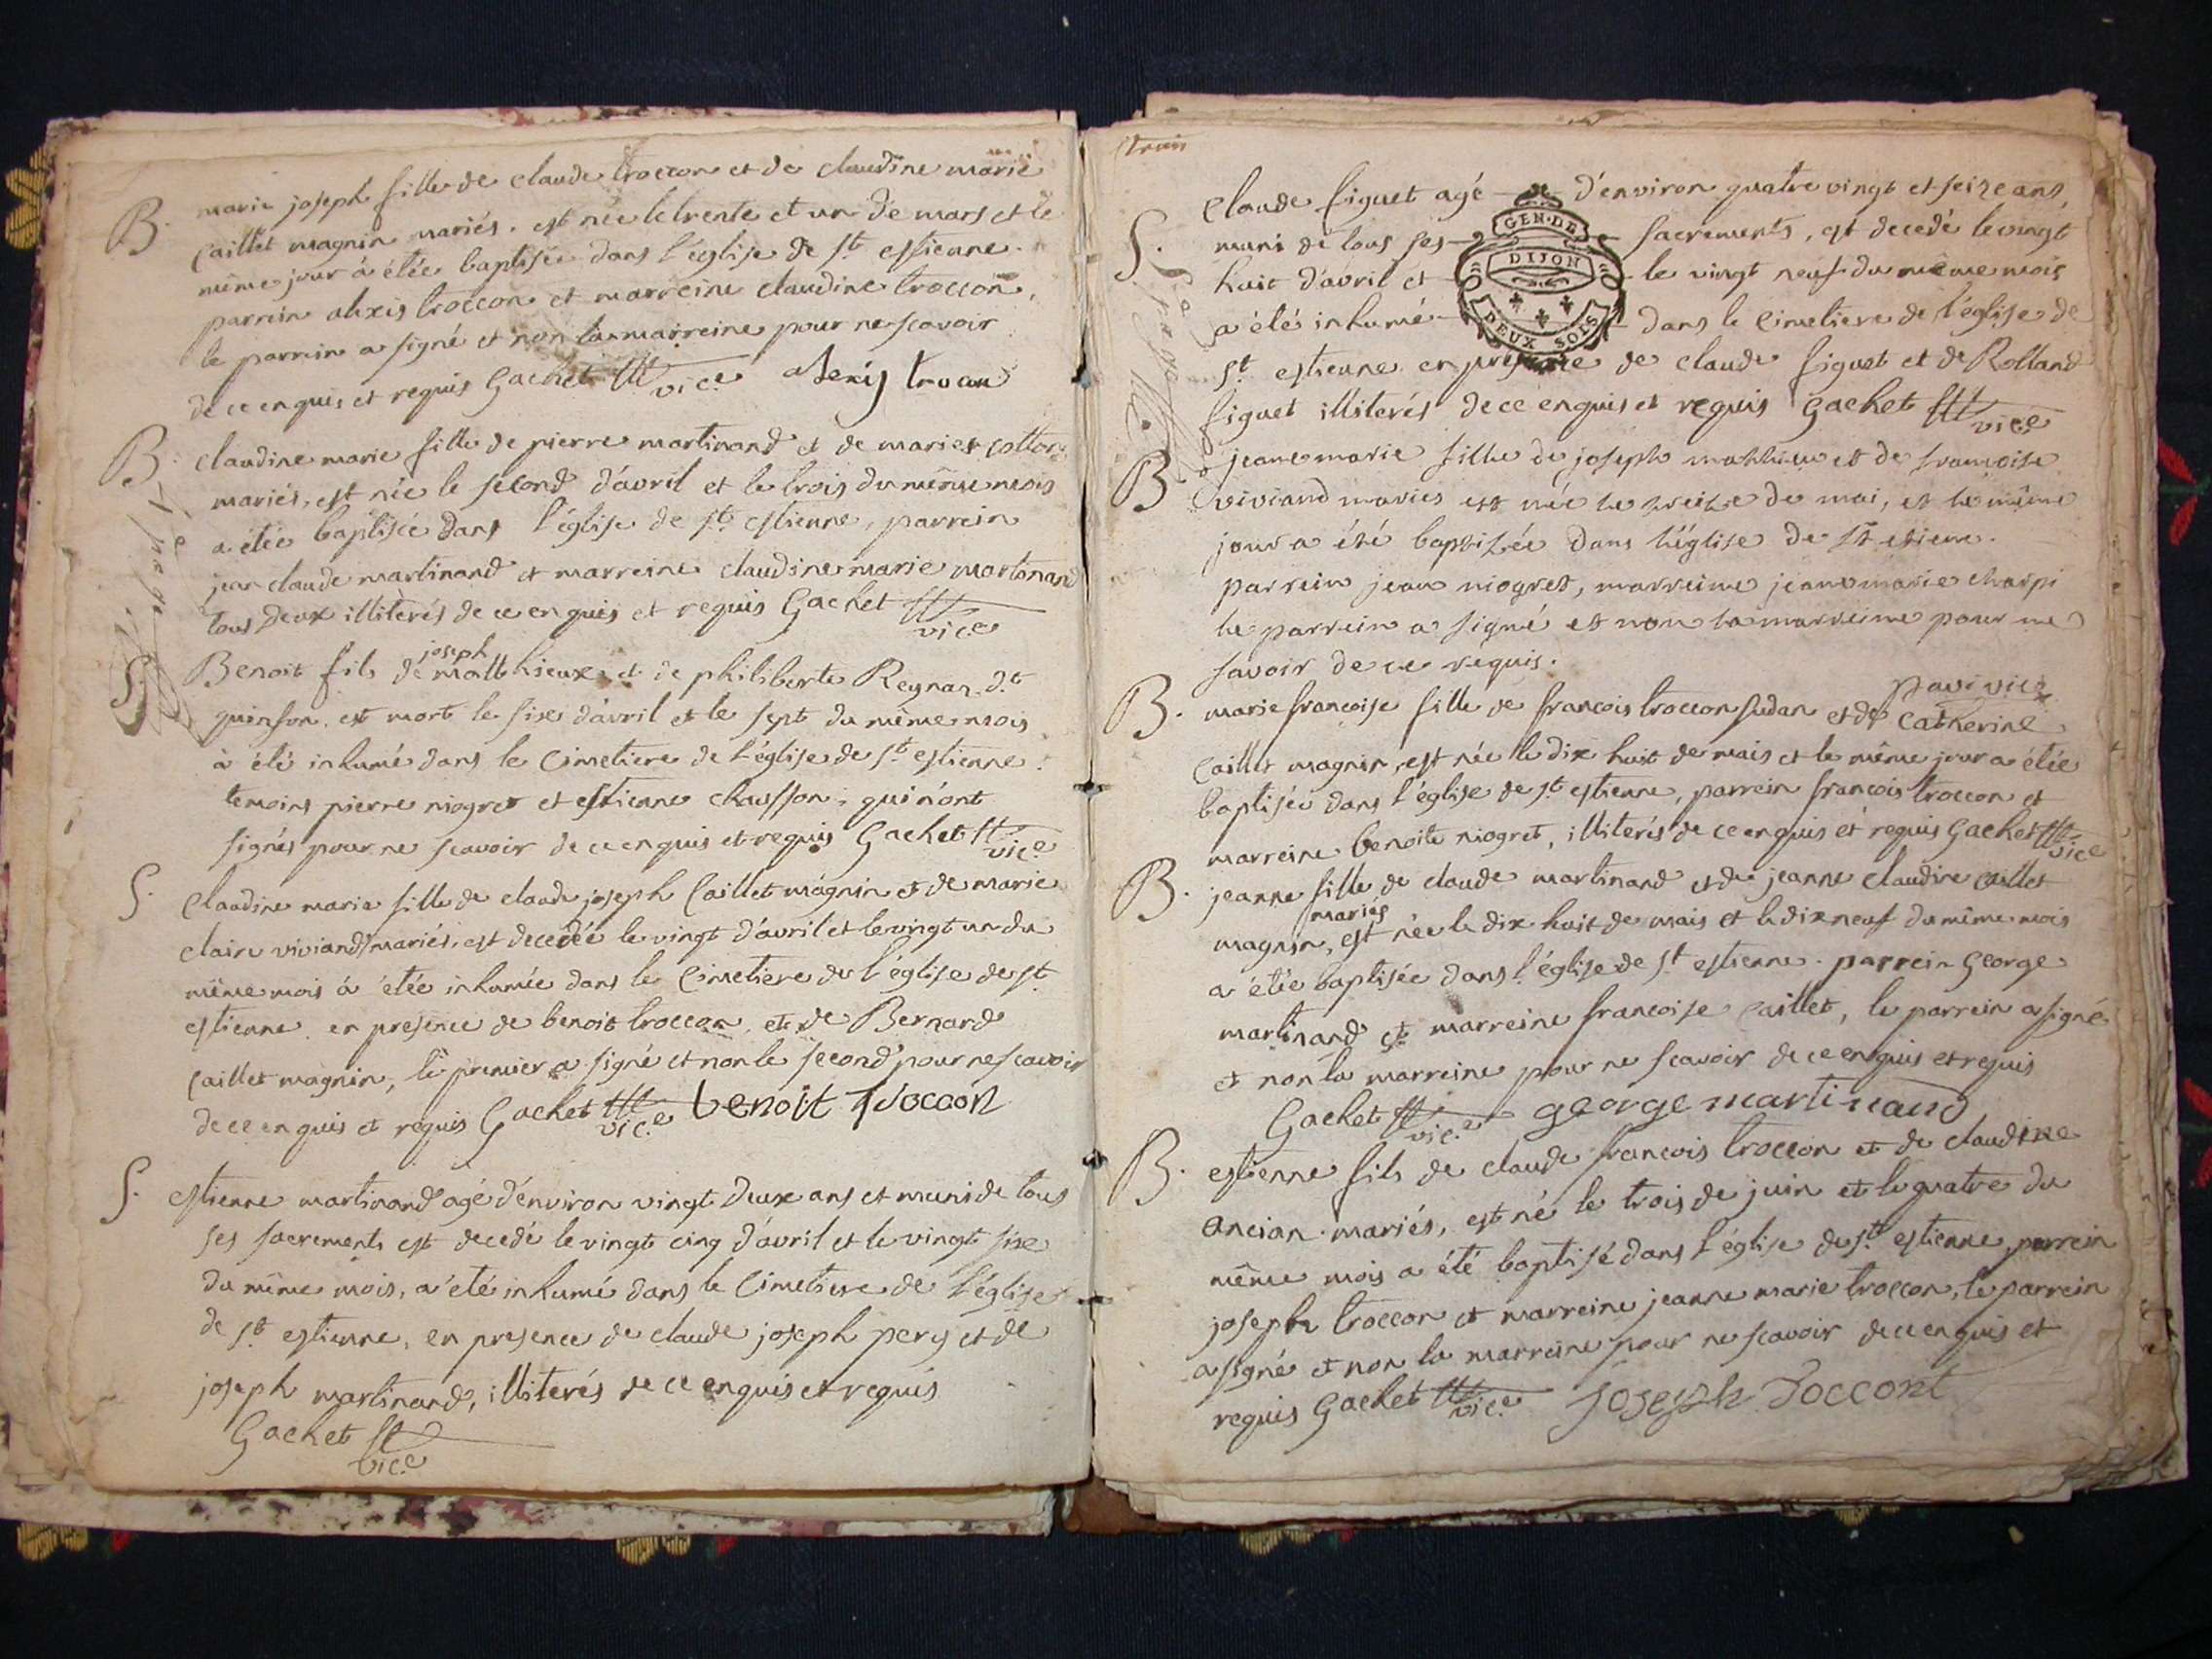 B. marie joseph fille de claude troccon et de claudine marie
caillet magnin mariés. est née le trente et un de mars et le
même jour à étée baptisée dans l'église de st estienne.
parrein alexis troccon et marreine claudine troccon,
le parrein a signé et non la marreine pour ne scavoir
de ce enquis et requis Gachet vice alexis trocon
B. claudine marie fille de pierre martinand et de marie
mariés, est née le second d'avril et le trois du même mois
a étée baptisée dans l'église de st estienne, parrein
jean claude martinand et marreine claudine marie martinand
tous deux illitérés de ce enquis et requis Gachet
vice
joseph
S. Benoit fils de matthieux et de philiberte Reynan dt
guinson, est mort le sixe d'avril et le sept du même mois
à été inhumé dans le Cimetiere de l'église de st estienne.
temoins pierre niogret et estienne chausson, qui n'ont
signés pour ne scavoir de ce enquis et requis Gachet vice
S. Claudine marie fille de claude joseph Caillet magnin et de marie
claire viviand mariés, est decedée le vingt d'avril et le vingt un du
même mois à étée inhumée dans le Cimetiere de l'église de st
estienne en presence de benoit troccon et de Bernard
caillet magnin, le premier a signé et non le second pour ne scavoir
de ce enquis et requis Gachet vice benoit troccon
S. estienne martinand agé d'environ vingt deux ans et muni de tous
ses sacrements est decedé le vingt cinq d'avril et le vingt sixe
du même mois, a été inhumé dans le Cimetiere de l'église
de st estienne, en presence de claude joseph pery et de
joseph martinand, illiterés de ce enquis et requis
Gachet
vice
trois
Claude figuet agé d'environ quatre vingt et seize ans,
S. muni de tous ses sacrements, est decedé le vingt
huit d'avril et le vingt neuf du même mois
a été inhumé dans le Cimetiere de l'église de
GEN. DE
DIJON
DEUX SOLS
st estienne en presence de claude figuet et de Rolland
figuet illiterés de ce enquis et requis Gachet vice
B jeanne marie fille de joseph mathieu et de francoise
viviand mariés est née le treize de mai, et le même
jour a été baptizée dans l'église de st etienne.
parrein jean niogret, marreine jeanne marie charpi
le parrein a signé et non la marreine pour ne
savoir de ce requis.
pavi vice
B. marie francoise fille de francois troccon sudan et de Catherine
caillet magnin, est née le dix huit de mais et le même jour a étée
baptisée dans l'église de st estienne, parrein francois troccon et
marreine benoite niogret, illiterés de ce enquis et requis Gachet vice
B. jeanne fille de claude martinand et de jeanne claudine caillet
mariés
magnin, est née le dix huit de mais et le dix neuf du même mois
a étée baptisée dans l'église de st estienne. parrein George
martinand et marreine francoise caillet, le parrein a signé
et non la marreine pour ne scavoir de ce enquis et requis
Gachet vice george martinand
B. estienne fils de claude francois troccon et de claudine
ancian mariés, est né le trois de juin et le quatre du
même mois a été baptisé dans l'église de st estienne, parrein
joseph troccon et marreine jeanne marie troccon, le parrein
a signé et non la marreine pour ne scavoir de ce enquis et
requis Gachet vice joseph Toccont